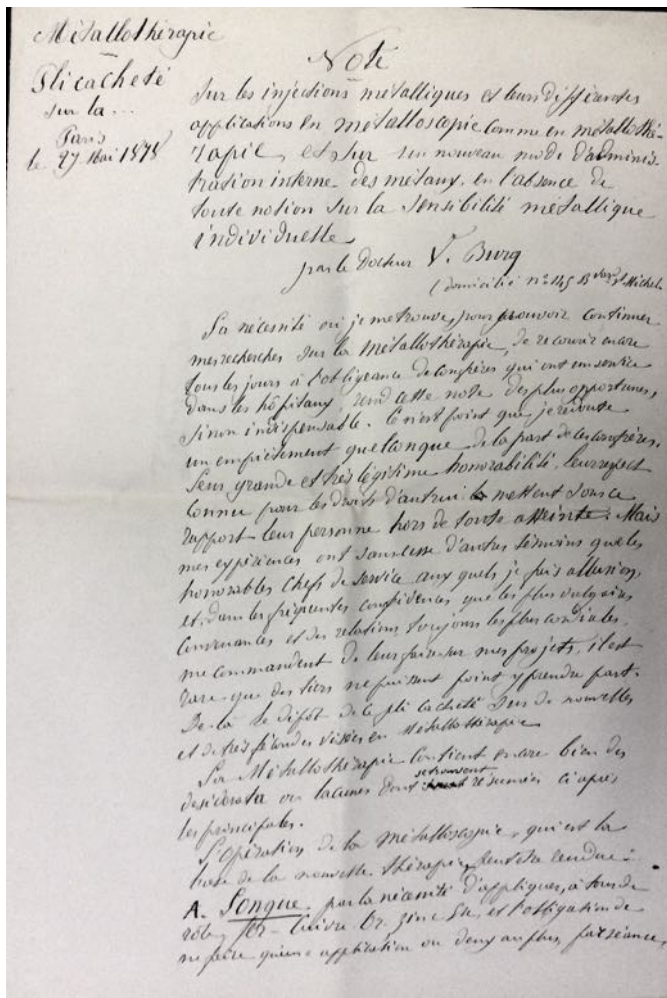 Métallothérapie
Pli cacheté
sur la...
Paris
le 27 Mai 1878
Note
sur les injections métalliques et leurs différentes
applications en métalloscopie comme en métallothé-
rapie, et sur un nouveau mode d'adminis-
tration interne des métaux, en l'absence de
toute notion sur la sensibilité métallique
individuelle
par le Docteur V. Burq
(domicilié n° 145 Bvard St Michel
La nécessité où je me trouve, pour pouvoir continuer
mes recherches sur la Métallothérapie, de recourir encore
tous les jours à l'obligeance de confrères qui ont un service
dans les hôpitaux, rend cette note des plus opportunes,
sinon indispensable. Ce n'est point que je redoute
un empiètement quelconque de la part de ces confrères.
Leur grande et très légitime honorabilité, leur respect
connu pour les droits d'autrui mettent sous ce
rapport leur personne hors de toute atteinte. Mais
mes expériences ont sans cesse d'autres témoins que les
honorables chefs de service aux quels je fais allusion,
et, dans les fréquentes confidences que les plus vulgaires
convenances et des relations toujours les plus cordiales,
me commandent de leur faire sur mes projets, il est
rare que des tiers ne puissent point y prendre part.
De là le dépôt de ce pli cacheté sur de nouvelles
et de très fécondes visées en Métallothérapie
La Métallothérapie contient encore bien des
desiderata ou lacunes dont se trouvent résumées ci après
les principales.
L'opération de la métalloscopie, qui est la
base de la nouvelle thérapie, peut être rendue :
A. Longue, par la nécessité d'appliquer, à tour de
rôle, Fer - Cuivre Or, Zinc &c, et l'obligation de
ne faire qu'une application ou deux au plus, par séance,